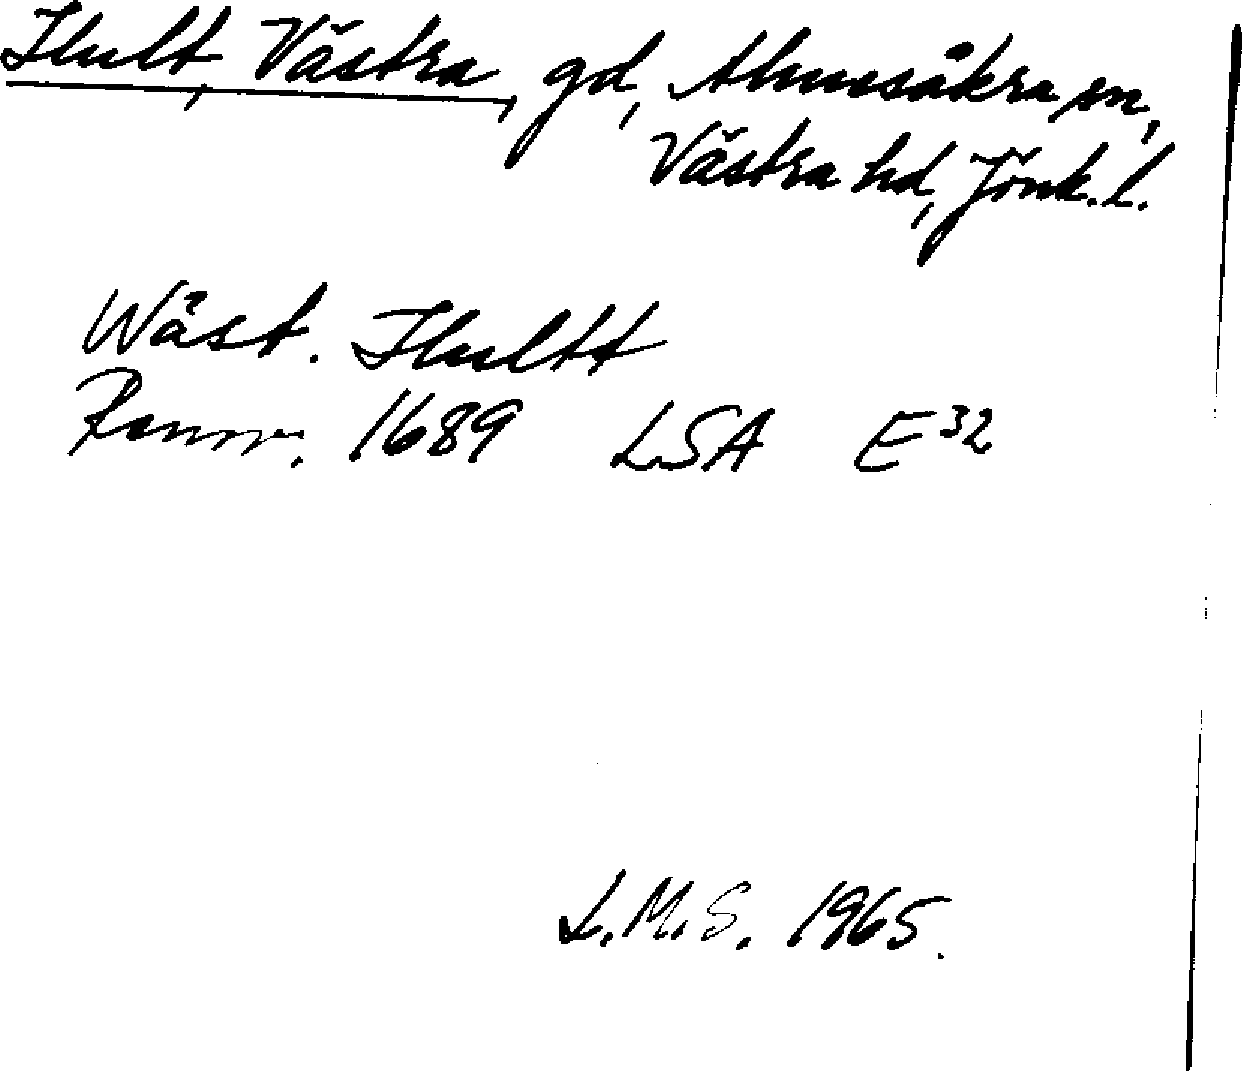 Ihult, Västra, gd, Almesåkra sn,
Västra hd, Jönk. l.
Wäst. Ihultt
Rannr. 1689 LSA E32
L.M.S. 1965.